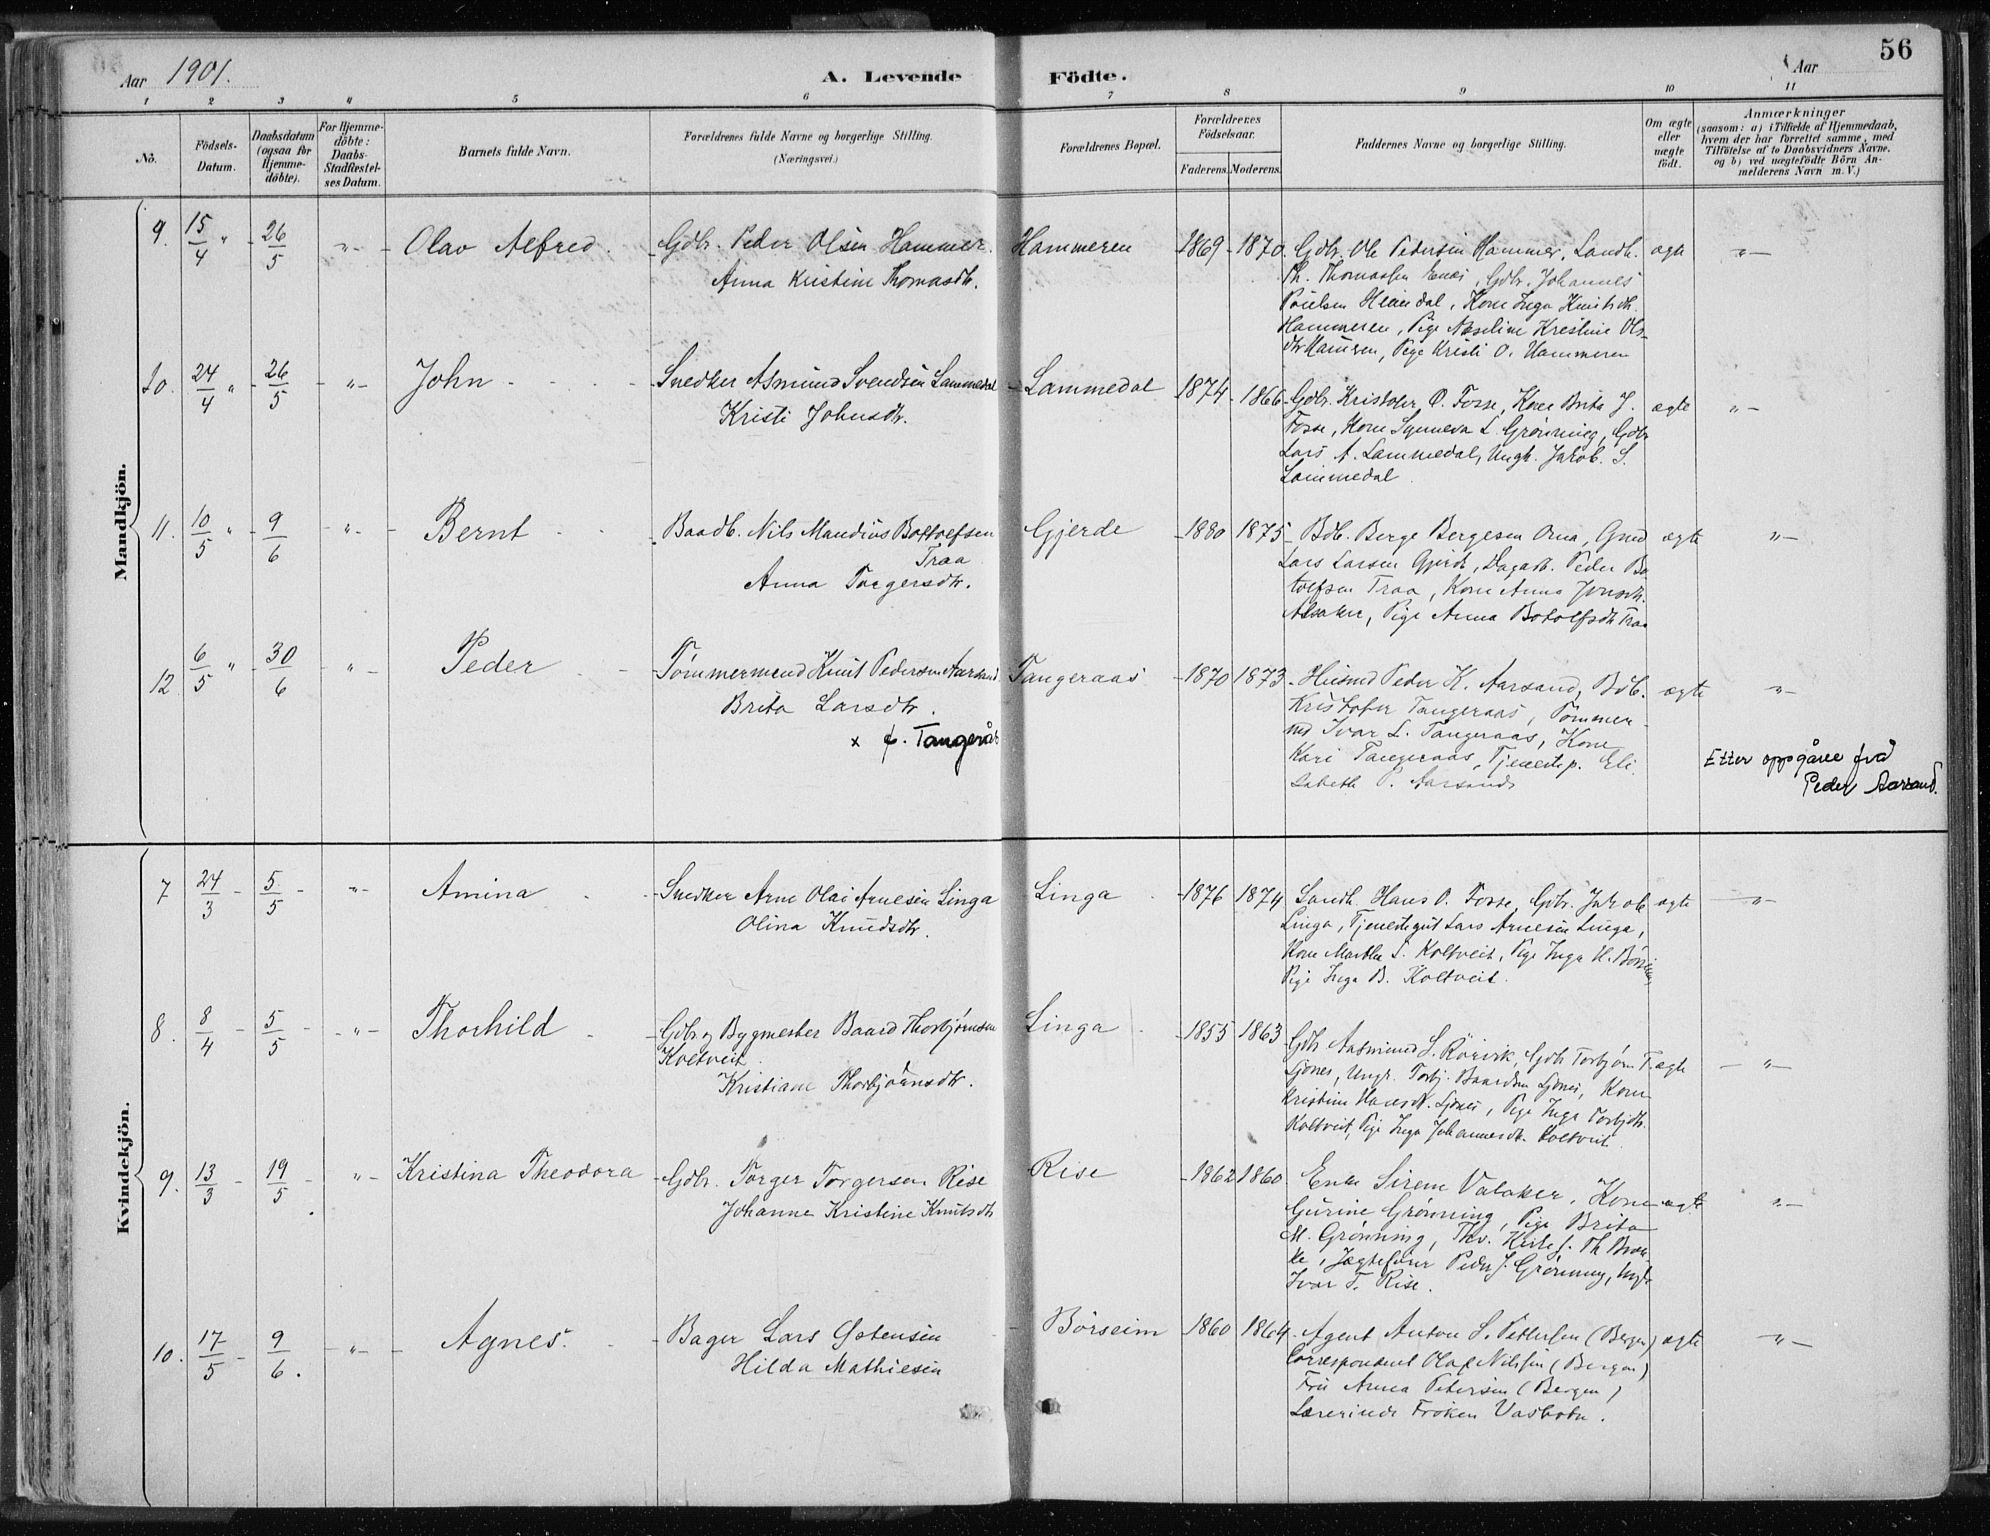 56
Aar 1901.
A. Levende Födte.
Aar
1 2 3 4 5 6 7 8 9 10 11
No.
Födsels-Datum.
Daabsdatum (ogsaa for Hjemme-döbte).
For Hjemme-döbte: Daabs-Stadfæstel-ses Datum.
Barnets fulde Navn.
Forældrenes fulde Navne og borgerlige Stilling.
(Næringsvei.)
Forældrenes Bopæl.
Forældrenes Födselsaar.
Faderens. Moderens.
Faddernes Navne og borgerlige Stilling.
Om ægte eller uægte födt.
Anmærkninger
(saasom: a) i Tilfælde af Hjemmedaab, hvem der har forrettet samme, med Tilföielse af to Daabsvidners Navne. og b) ved uægtefödte Börn An-melderens Navn m. V.)
Mandkjön.
9. 15/4 " 26/5 " Olav Alfred. Gdbr. Peder Olsen Hammer Hammeren 1869 1870 Gdbr. Ole Pedersen Hammer, Landh. ægte "
Anna Kristine Thomasdtr. Th. Thomassen Enes, Gdbr. Johannes
Kone Inga Knutsdtr.
Hammeren, Pige Kristine Ols-
Pige Kristi O. Hammeren
10. 24/4 " 26/5 " John Snedker Asmund Svendsen Lammedal Lammedal 1874 1866 Gdbr. Kristofer O. Fosse, Kone Brita J. ægte "
Kristi Johnsdtr. Fosse, Kone Synneva L. Grønning, Gdbr
Lars A. Lammedal, Ungk. Jakob S.
Lammedal
11. 10/5 " 9/6 " Bernt Baadb. Nils Mandius Bottolfsen Gjerde 1880 1875 Bdb. Berge Bergesen Oma, Gmd ægte "
Traa Lars Larsen Gjerde, Dagarb. Peder Bo
Anna Torgersdtr. tolfsen Traa, Kone Anna Jonsdtr.
Pige Anna Botolfsdtr Traa
12 6/5 " 30/6 " Peder Tømmermend Knut Pedersen Aarsand Tangeraas 1870 1873 Husmd Peder K. Aarsand, Bdb. ægte "
Brita Larsdtr. Kristofer Tangeraas, Tømmer-
x f. Tangerås md Ivar L. Tangeraas, Kone
Kari Tangeraas, Tjenestep. Eli
sabeth P. Aarsand
Etter oppgåve frå
Peder Aarsand.
Kvindekjön.
7 24/3 5/5 " Amina Snedker Arne Olai Arnesen Linga Linga 1876 1874 Landh. Hans O. Fosse, Gdbr. Jakob ægte "
Olina Knudsdtr. Linga, Tjenestegut Lars Arnesen Linga,
Kone Marthe S. Koltveit, Pige Inga H. Børseim,
Pige Inga B. Koltveit.
8. 8/4 5/5 " Thorhild Gdbr. og Bygmester Baard Thorbjørnsen Linga 1855 1863 Gdbr Aasmund L. Rørvik, Gdbr Torbjørn T. ægte "
Koltveit Ljones, Ungk. Torbj. Baardsen Ljones, Kone
Kristiane Thorbjörnsdtr. Kristine Hansdtr. Ljones, Pige Inga Torbjdtr.
Koltveit, Pige Inga Johannesdtr. Koltveit
9. 13/3 19/5 " Kristina Theodora Gdbr. Torger Torgersen Rise Rise 1862 1860 Enke Sirene Valaker, Kone ægte "
Johanne Kristine Knutsdtr Gurine Grønning, Pige Brita
M. Grønning,
Jægtefører Peder J. Grønning, Ungk
Ivar T. Rise.
10. 17/5 9/6. " Agnes. Bager Lars Østensen Börseim 1860 1864 Agent Anton L. Pettersen (Bergen) ægte "
Hilda Mathiesen Correspondent Olaf Nilsen (Bergen)
Fru Anna Petersen (Bergen)
Lærerinde Frøken Vasbotn.